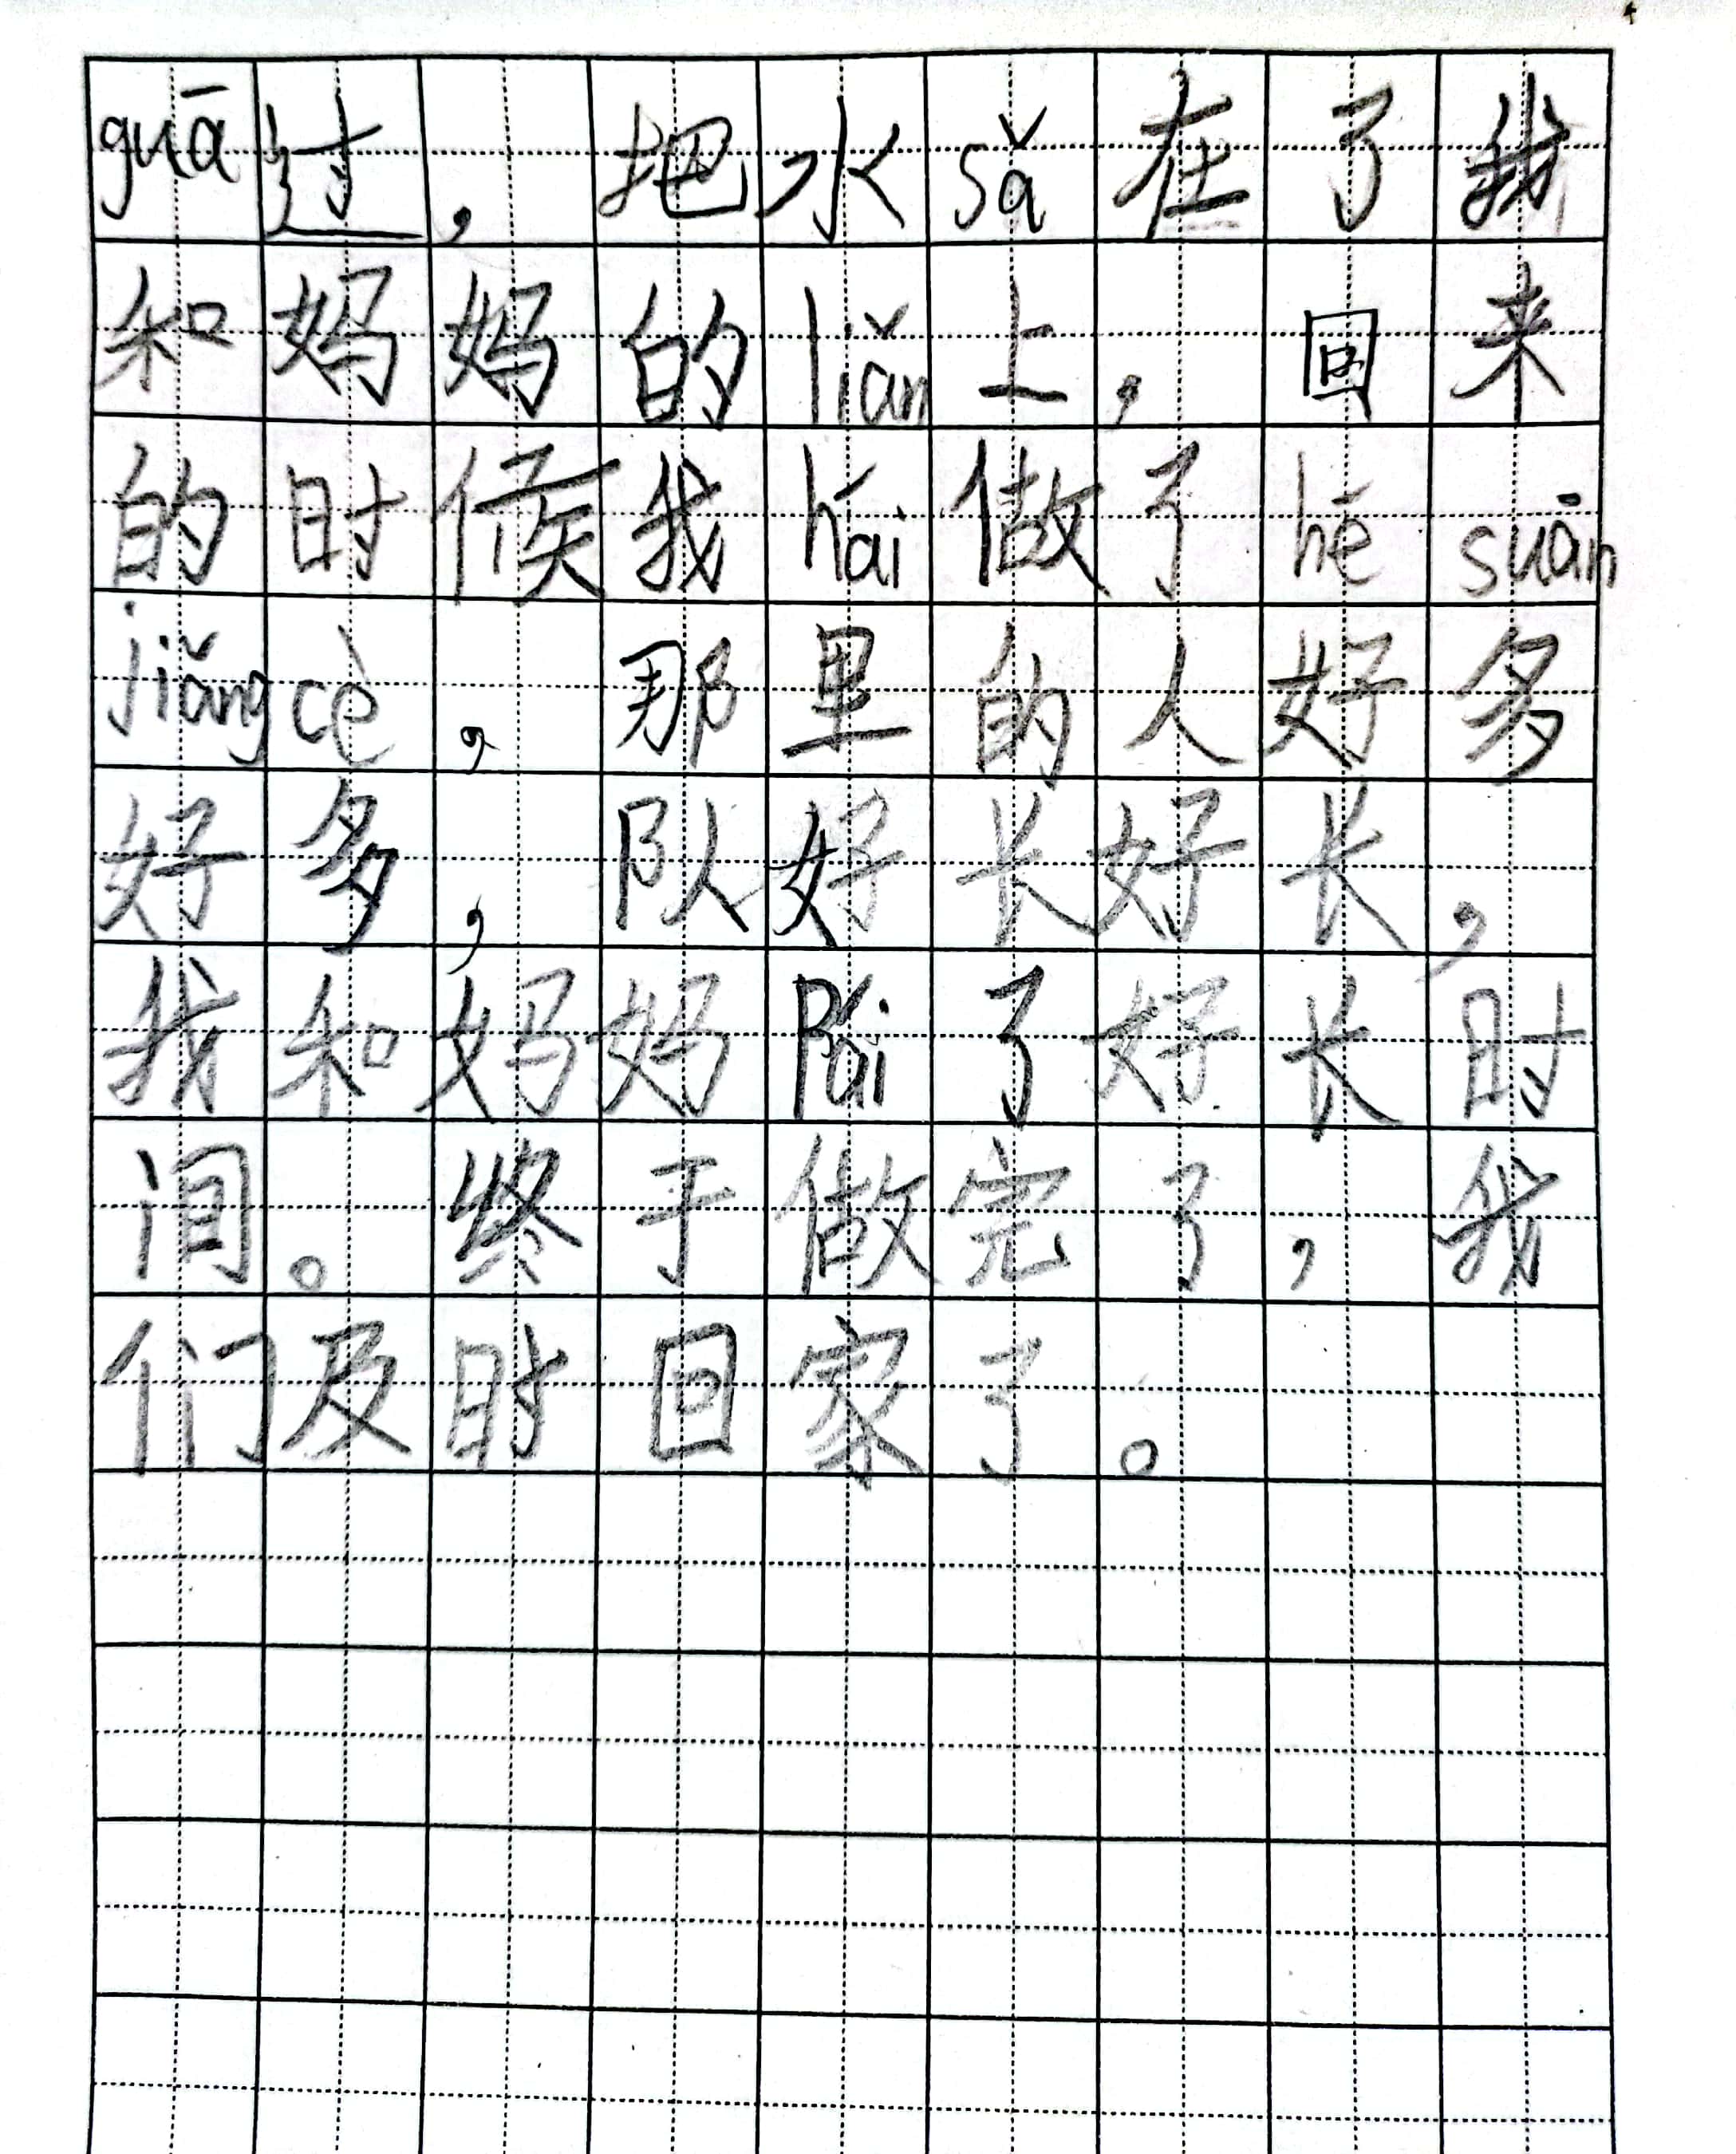 guā过，把水sǎ在了我
和妈妈的liǎn上，回来
的时候我hái做了hē suān
jiǎng cè，那里的人好多
好多，队好长好长，
我和妈妈Pái了好长时
间。终于做完了，我
们及时回家了。